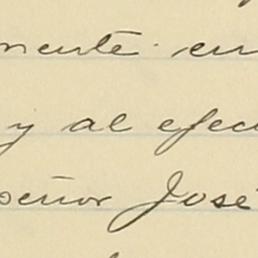 mente en
y al efec
señor José